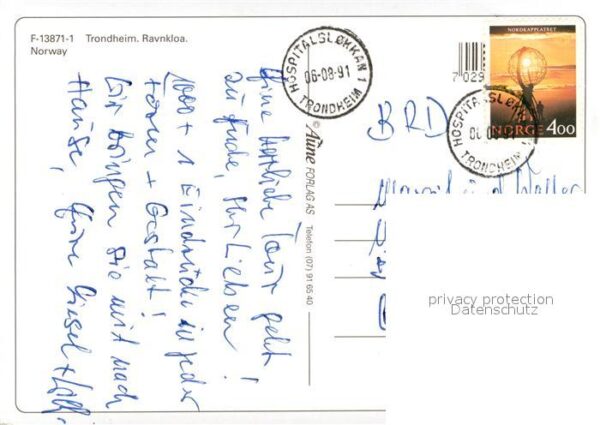 F-13871-1 Trondheim. Ravnkloa.
Norway
Eine herrliche Tour geht
zu Ende, Ihr Lieben!
1000 + 1 Eindrücke in jeder
Form + Gestalt!
Wir bringen sie mit nach
Hause, Eure Gisel +
© Aune FORLAG AS Telefon (07) 91 65 40
HOSPITALSLØKKAN 1
06-08-91
TRONDHEIM
7 029
NORDKAPPLATÅET
NORGE 4.00
HOSPITALSLØKKAN
TRONDHEIM
BRD
privacy protection
Datenschutz